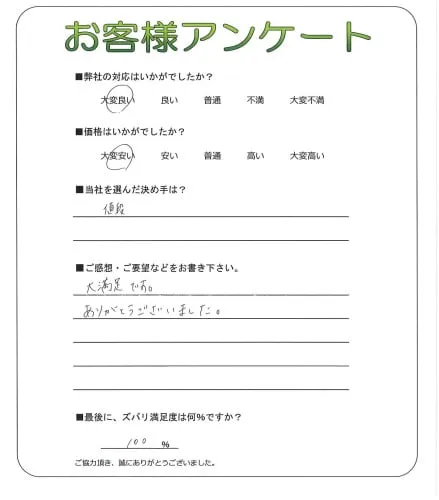 お客様アンケート
■弊社の対応はいかがでしたか？
大変良い 良い 普通 不満 大変不満
■価格はいかがでしたか？
大変安い 安い 普通 高い 大変高い
■当社を選んだ決め手は？
値段
■ご感想・ご要望などをお書き下さい。
大満足です。
ありがとうございました。
■最後に、ズバリ満足度は何%ですか？
100 %
ご協力頂き、誠にありがとうございました。